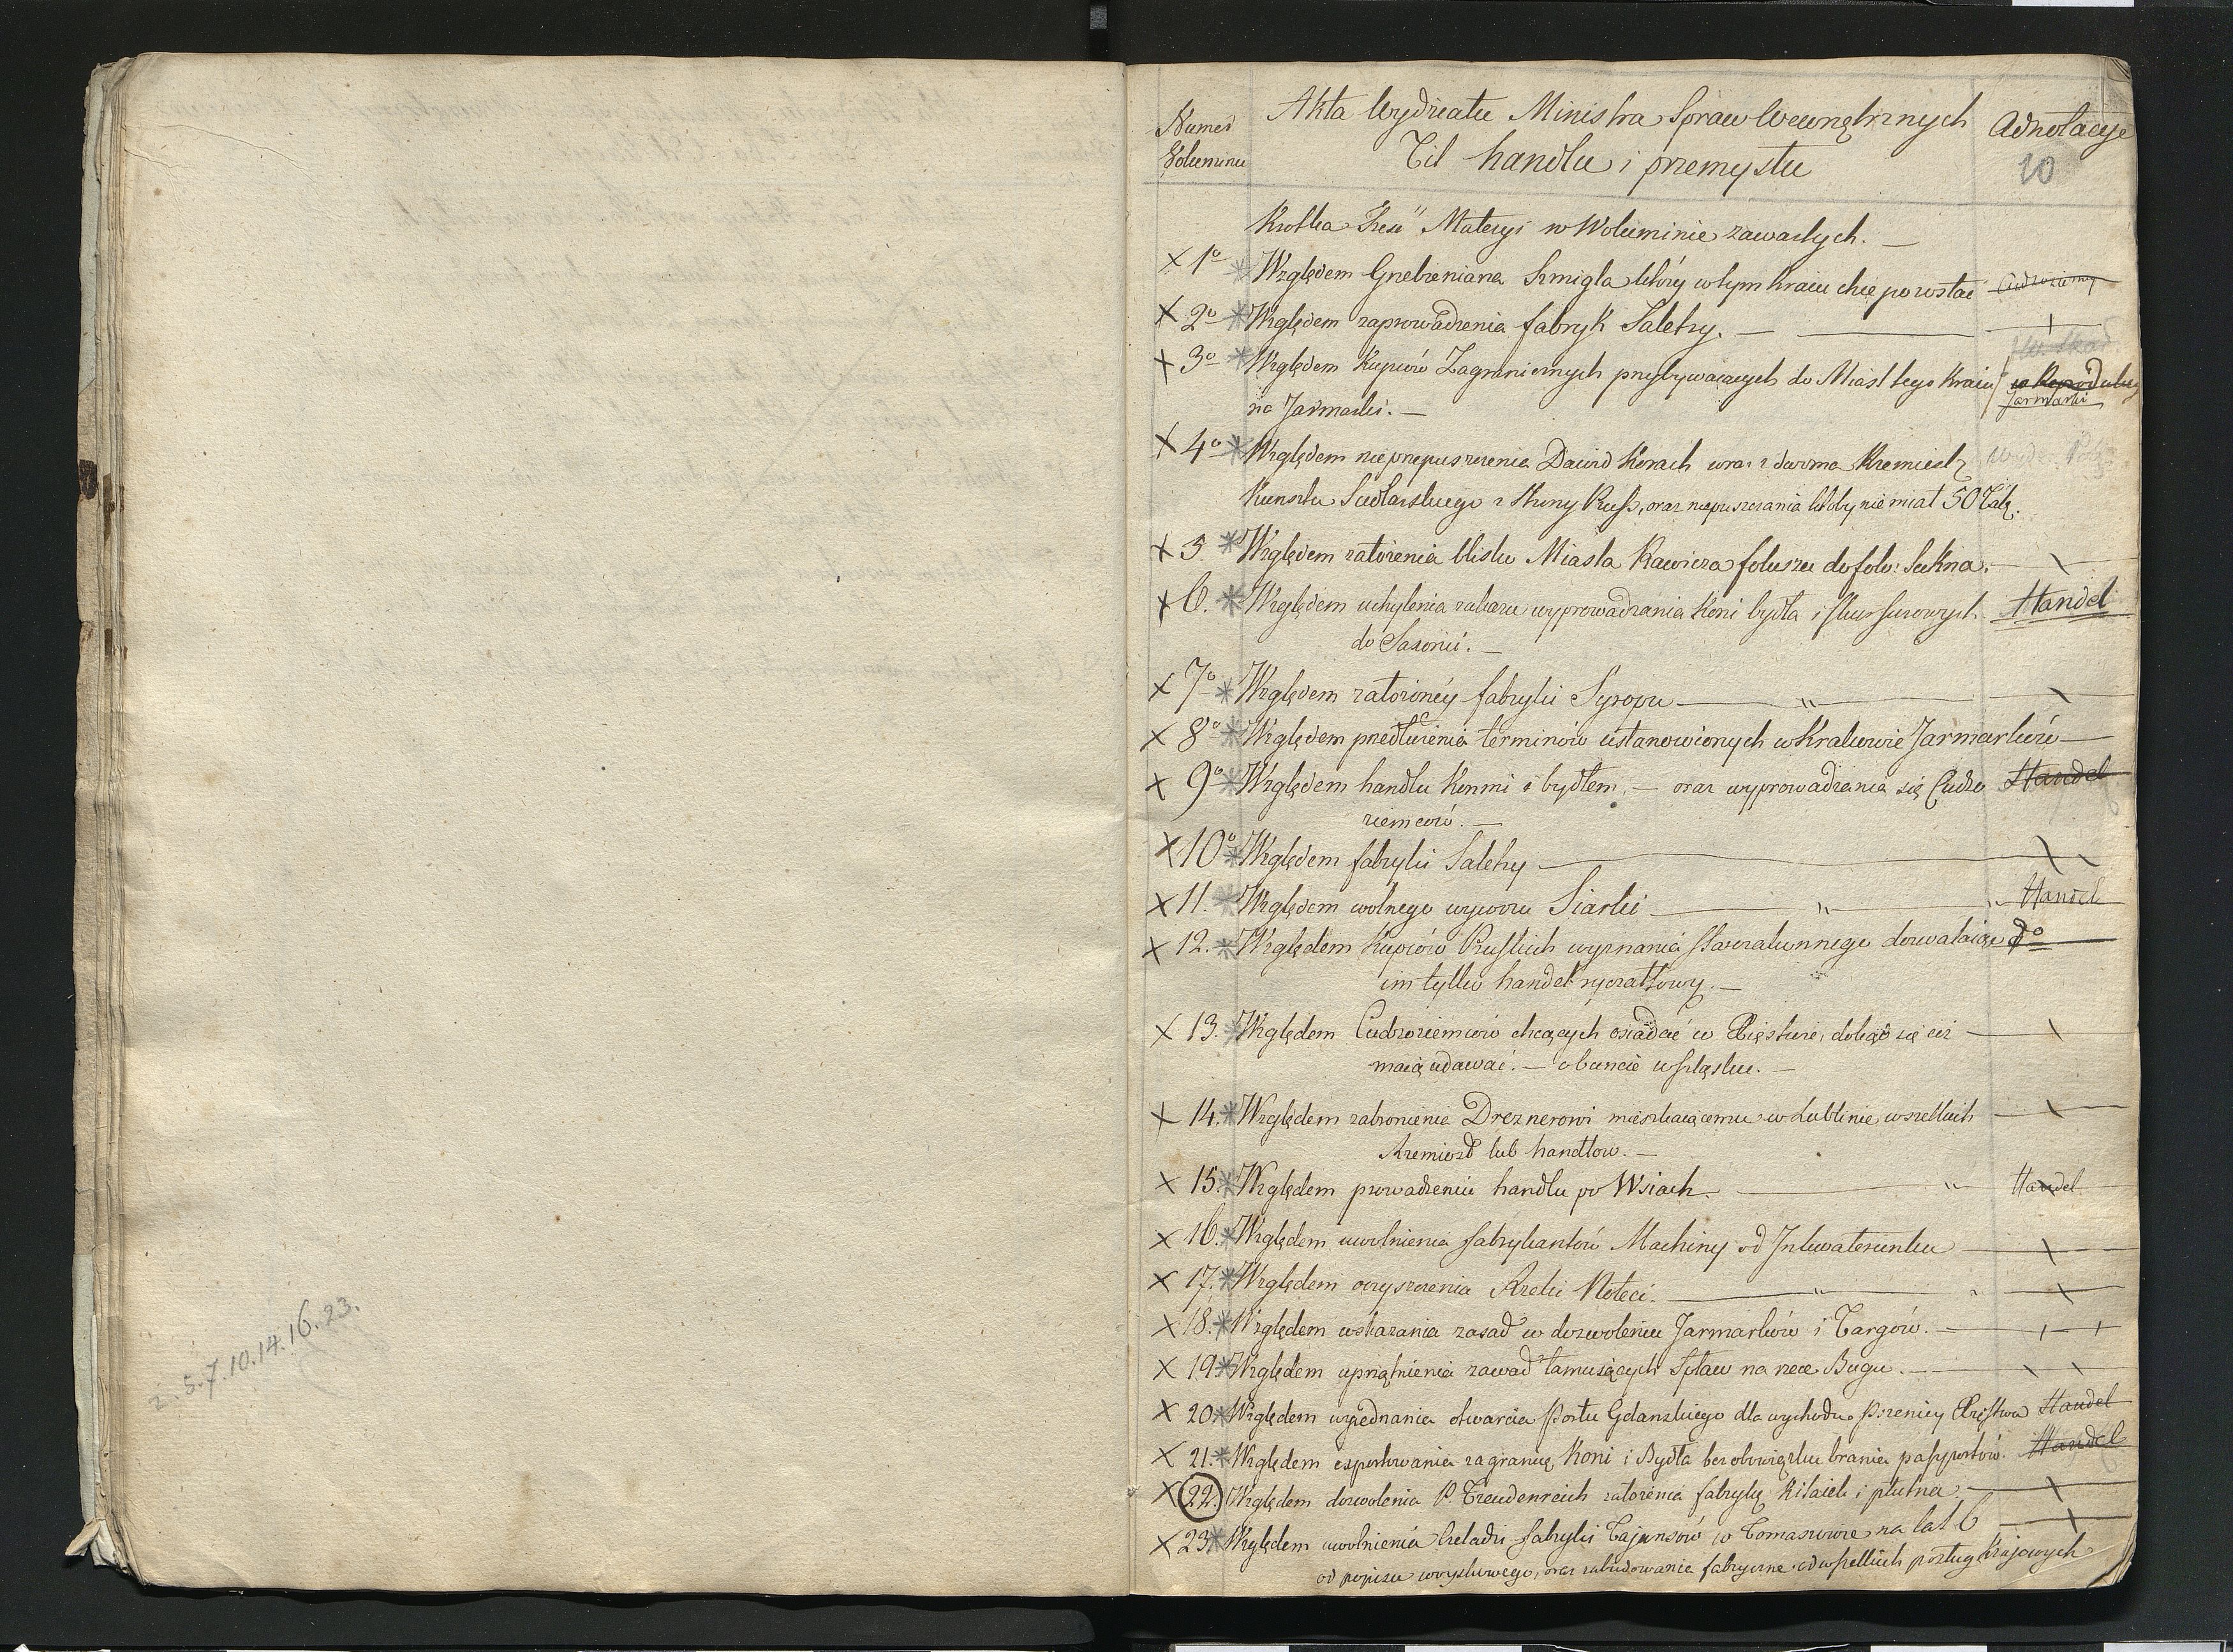 2.5.7.10.14.16.23.
Numer Voluminu
Akta Wydziału Ministra Spraw Wewnętrznych
Adnotacye
Tit handlu i przemysłu
20
Krotka Treść Materyi w Woluminie zawartych. —
× 1° Względem Grzebieniarza Szmigla który w tym kraiu chce pozostać Cudzoziemcy
× 2° Względem zaprowadzenia fabryk Saletry. —
× 3° Względem Kupców Zagranicznych przybywaiących do Miast tego Kraiu
na Jarmarki. — Jarmarki
× 4° Względem nieprzepuszczenia Dawid Korach oraz
Kunsztu Siodlarskiego z Strony Russ, oraz niepuszczania ktoby nie miał 50 Tal.
× 5 Względem założenia blisko Miasta Rawicza foluszu do folo: Sukna. —
× 6. Względem uchylenia zakazu wyprowadzania Koni bydła i skur surowych Handel
do Saxonii. —
× 7° Względem założonéy fabryki Syropu —
× 8° Względem przedłużenia terminów ustanowionych w Krakowie Jarmarków —
× 9° Względem handlu Końmi i bydłem, — oraz wyprowadzania się Cudzo Handel
ziemców. —
× 10° Względem fabryki Saletry —
× 11. Względem wolnego wywozu Siarki — Handel
× 12. Względem Kupców Ruskich wyznania Starozakonnego dozwalaiąc d°
im tylko handel ryczałtowy. —
× 13. Względem Cudzoziemców chcących osiadać w Xięstwie, dokąd się ciż
maią udawać. — o buncie w szląsku. —
× 14. Względem zabronienia Dreznerowi mieszkaiącemu w Lublinie wszelkich
Rzemiosł lub handlow. —
× 15. Względem prowadzeniu handlu po Wsiach. — Handel
× 16. Względem uwolnienia fabrykantów Machiny od Inkwaterunku —
× 17. Względem oczyszczenia Rzeki Noteci. —
× 18. Względem wskazania zasad w dozwoleniu Jarmarków i Targów. —
× 19 Względem uprzątnienia zawad tamuiących Spław na rzece Bugu. —
× 20. Względem wyiednania otwarcia Portu Gdanskiego dla wychodu Pszenicy Xięstwa Handel
× 21. Względem exportowania zagranicę Koni i Bydła bez obowiązku brania passportów. Handel
× 22. Względem dozwolenia P. Treudenreich założenia fabrykę Kitaiek i płutna. —
× 23 Względem uwolnienia Czeladzi fabryki Fajansów w Tomaszowie na lat 6 —
od popisu woyskowego, oraz zabudowania fabryczne od wszelkich posług Krajowych